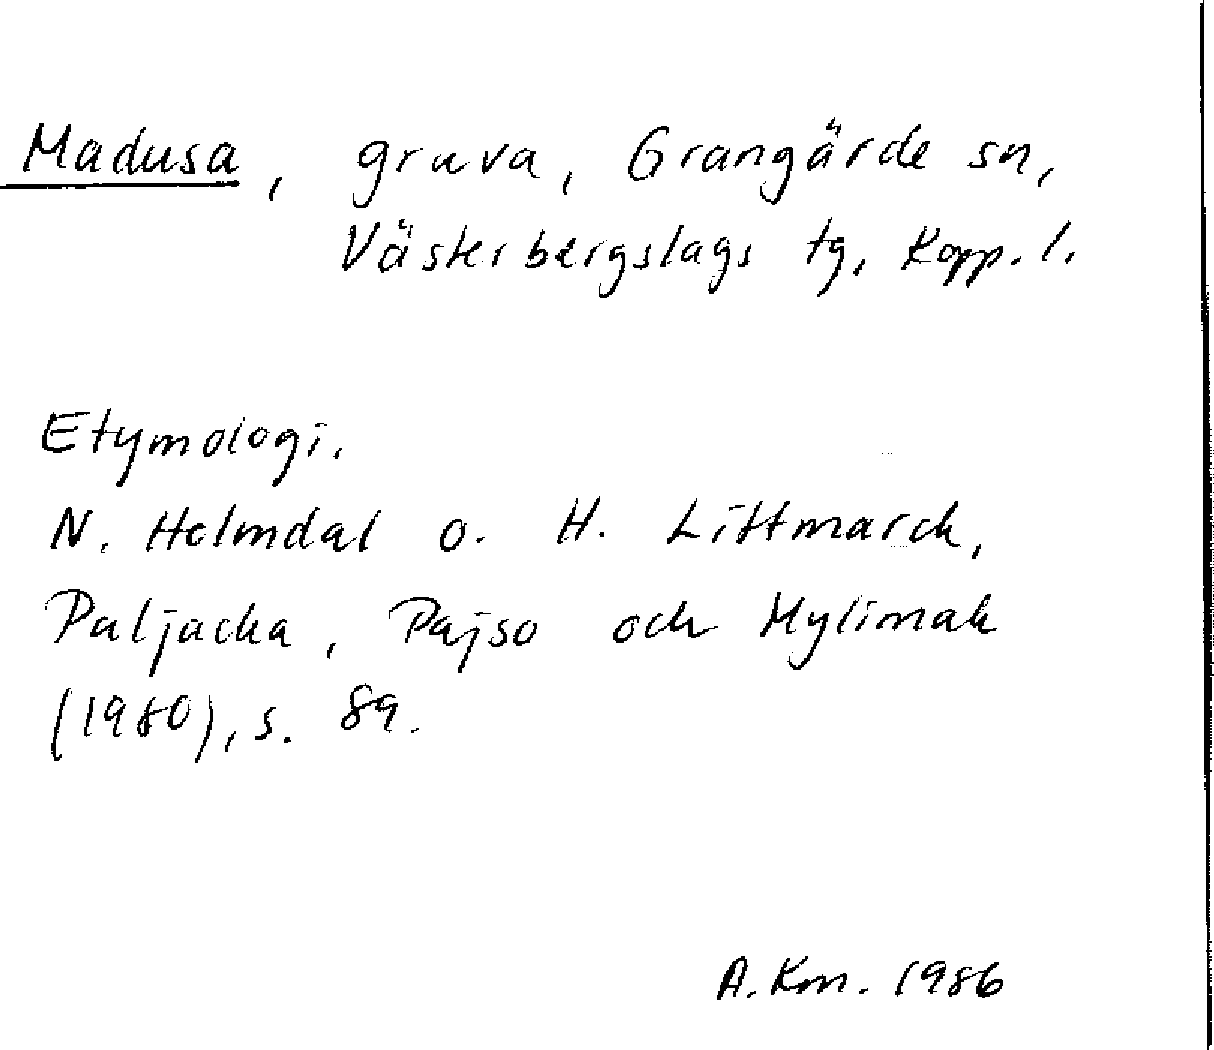 Madusa, gruva, Grangärde sn,
Västerbergslags tg, Kopp. l.
Etymologi.
N. Holmdal o. H. Littmarck,
Paljacka, Pajso och Mylimak
(1980), s. 89.
A. Km. 1986